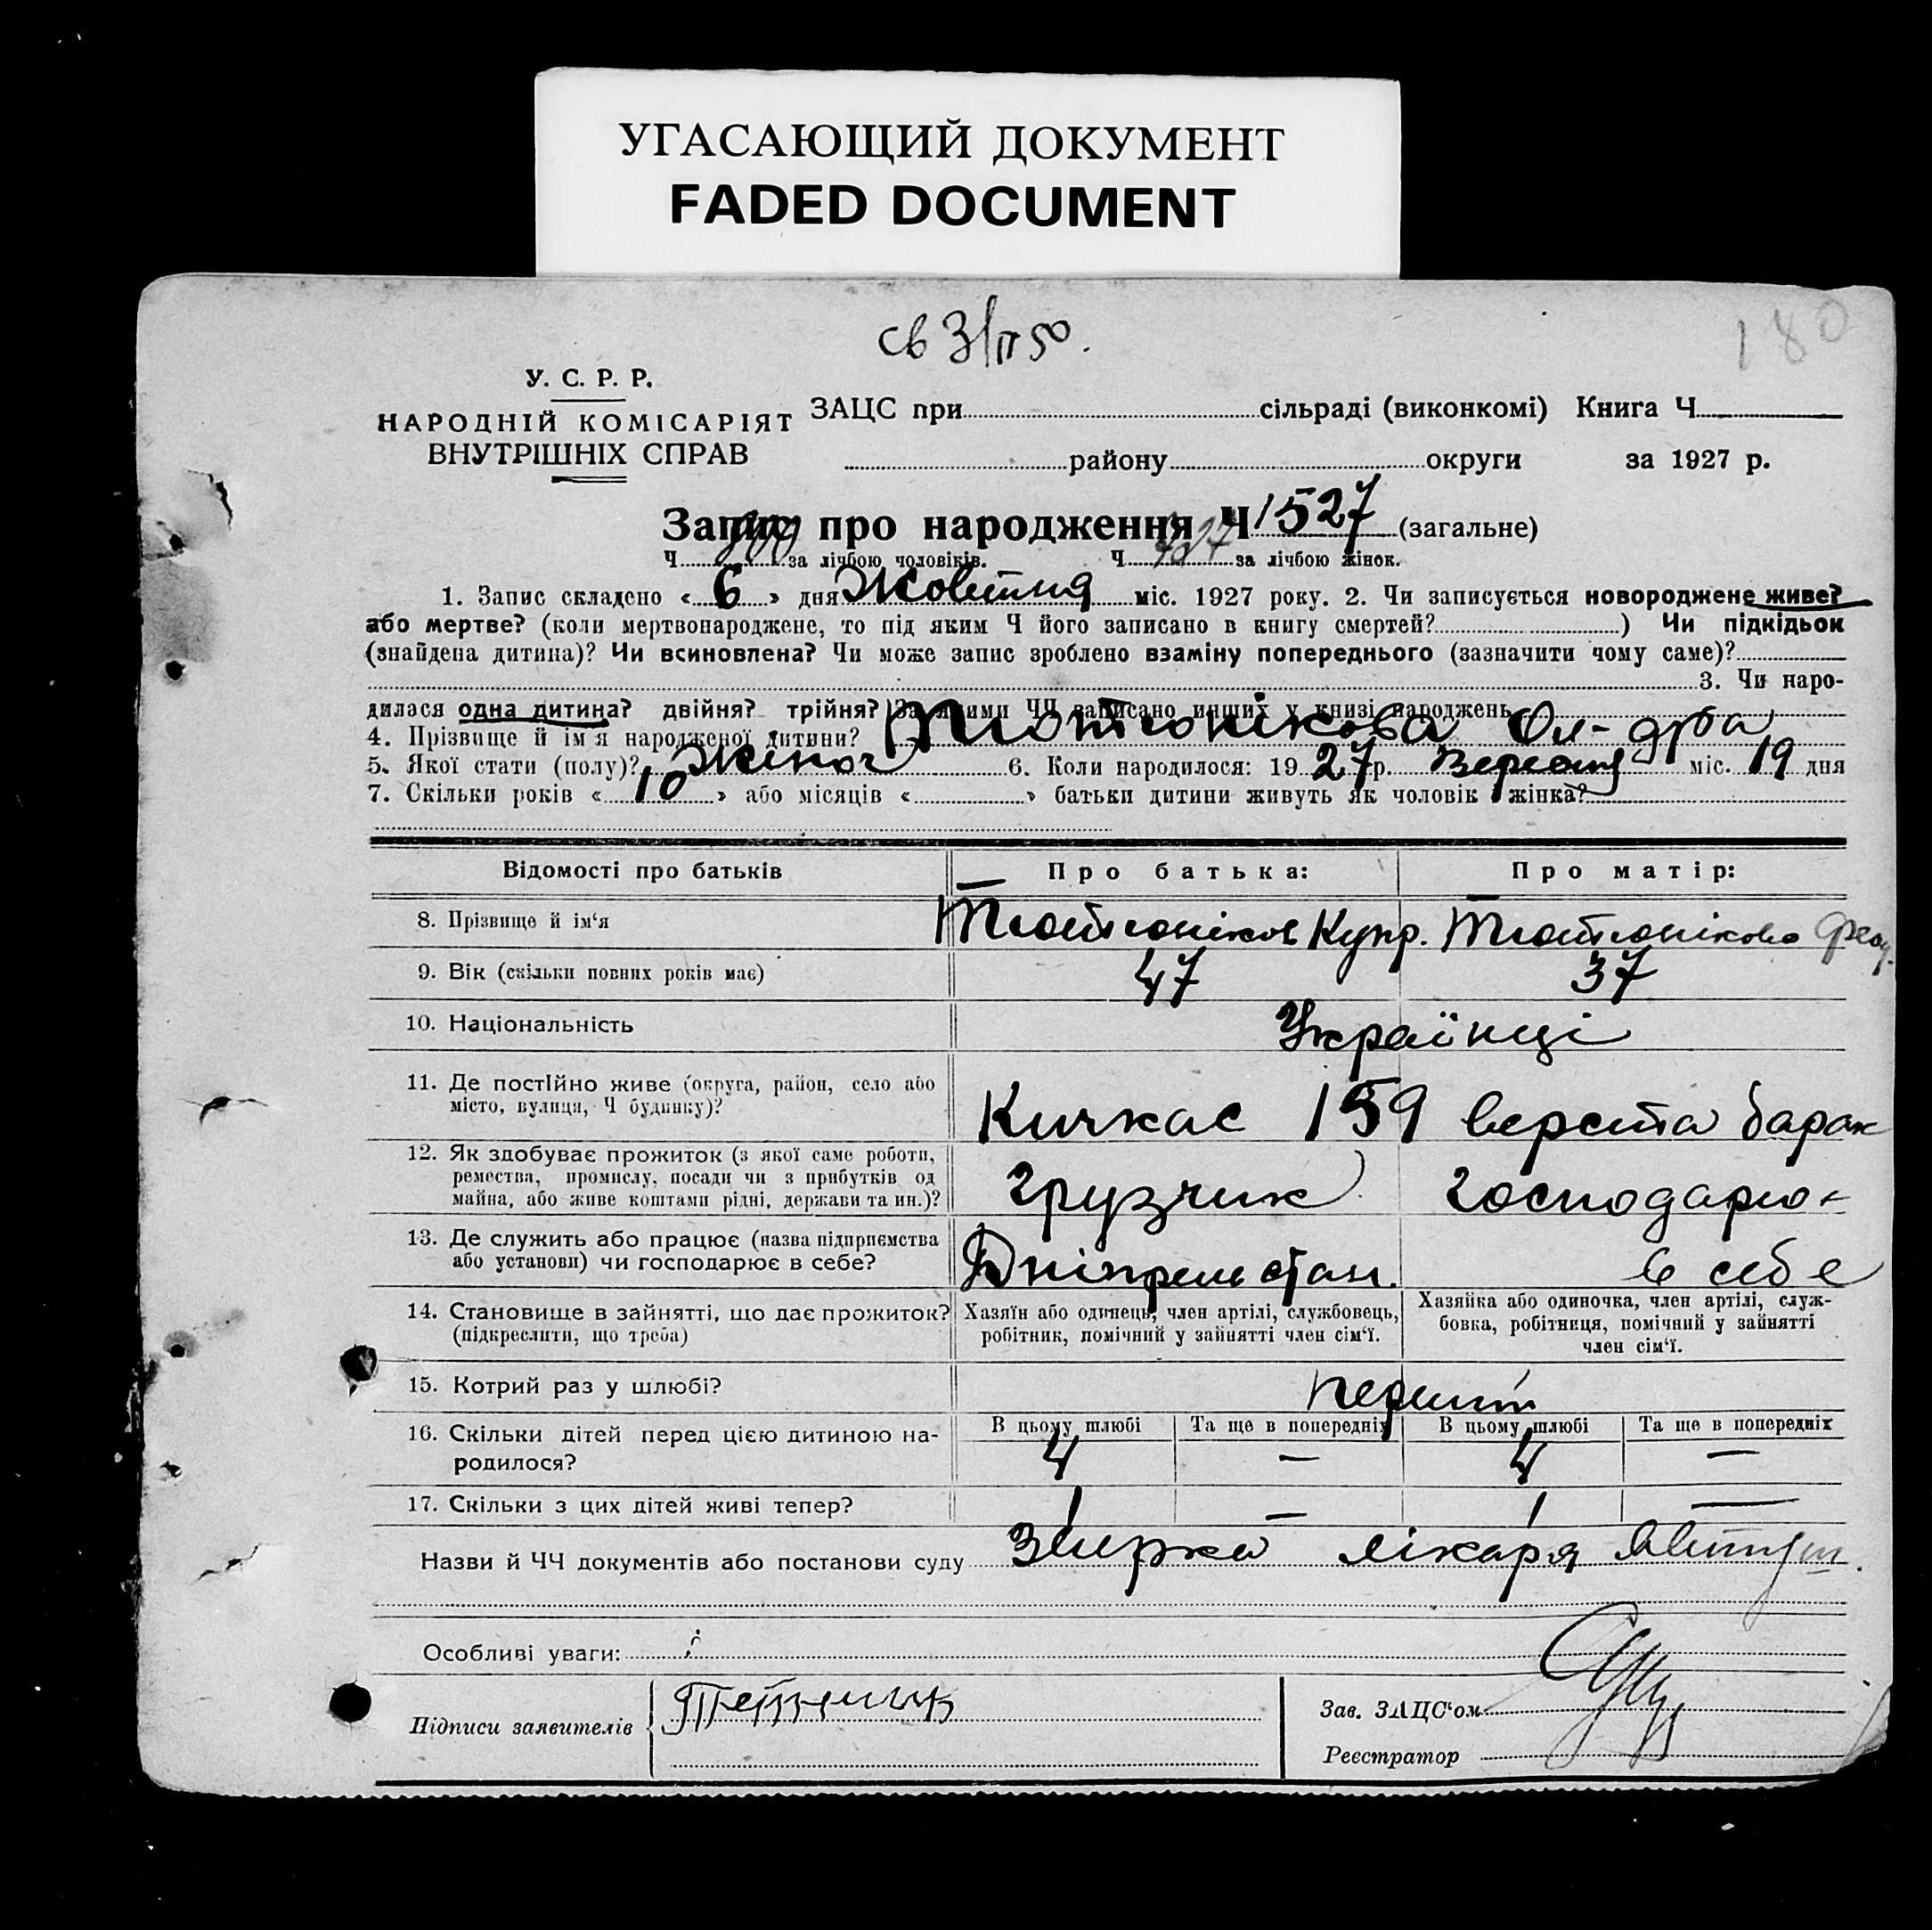 УГАСАЮЩИЙ ДОКУМЕНТ
FADED DOCUMENT
180
У. С. Р. Р.
НАРОДНІЙ КОМІСАРІЯТ
ВНУТРІШНІХ СПРАВ
ЗАЦС при сільраді (виконкомі) Книга Ч
району округи за 1927 р.
Запис про народження Ч 1527 (загальне)
Ч за лічбою чоловіків. Ч за лічбою жінок.
1. Запис складено « 6 » дня Жовтня міс. 1927 року. 2. Чи записується новороджене живе?
або мертве? (коли мертвонароджене, то під яким Ч його записано в книгу смертей? ) Чи підкідьок
(знайдена дитина)? Чи всиновлена? Чи може запис зроблено взаміну попереднього (зазначити чому саме)?
3. Чи наро-
дилася одна дитина? двійня? трійня? За якими ЧЧ записано инших у книзі народжень
4. Прізвище й ім'я народженої дитини? Тютюнікова Ол-дра
5. Якої стати (полу)? жіноч 6. Коли народилося: 19 27 р. Вересня міс. 19 дня
7. Скільки років « 10 » або місяців « » батьки дитини живуть як чоловік і жінка?
Відомості про батьків Про батька: Про матір:
8. Прізвище й ім'я Тютюніков Купр. Тютюнікова
9. Вік (скільки повних років має) 47 37
10. Національність Українці
11. Де постійно живе (округа, район, село або
місто, вулиця, Ч будинку)? Кичкас 159 верста барак
12. Як здобуває прожиток (з якої саме роботи,
ремества, промислу, посади чи з прибутків од
майна, або живе коштами рідні, держави та ин.)? грузчик господарю-
13. Де служить або працює (назва підприємства
або установи) чи господарює в себе? Дніпрельстан. в себе
14. Становище в зайнятті, що дає прожиток?
(підкреслити, що треба)
Хазяїн або одинець, член артілі, службовець,
робітник, помічний у зайнятті член сім'ї.
Хазяйка або одиночка, член артілі, служ-
бовка, робітниця, помічний у зайнятті
член сім'ї.
15. Котрий раз у шлюбі? перший
В цьому шлюбі Та ще в попередніх В цьому шлюбі Та ще в попередніх
16. Скільки дітей перед цією дитиною на-
родилося? 4 — 4 —
17. Скільки з цих дітей живі тепер? 1 — 1 —
Назви й ЧЧ документів або постанови суду лікаря
Особливі уваги:
Підписи заявителів
Зав. ЗАЦС'ом
Реєстратор